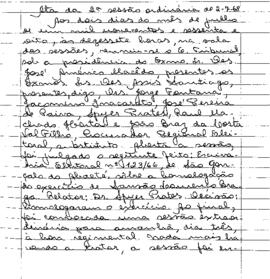 Ata da 2ª sessão ordinária de 2-7-68
Aos dois dias do mês de julho
de um mil novecentos e sessenta e
oito, às dezessete horas, na sala
das sessões, reuniu-se o Tribunal
sob a presidência do Exmo. Sr. Des.
José Américo Macedo, presentes os
Exmos. Srs. Des. José Santiago,
Jorge Fontana,
Jacomino Inacarato, José Pereira
de Paiva, Spyer Prates, Raul Ma-
chado Horta e João Braz da Costa
Val Filho, Procurador Regional Elei-
toral, e substituto. Aberta a sessão,
foi julgado o seguinte feito:
Eleitoral nº 1.123/67, de São Gon-
çalo do Abaeté, sobre a homologação
do exercício de Sansão Bra-
ga. Relator: Dr. Spyer Prates. Decisão:
Homologaram o exercício. Ao final,
foi convocada uma sessão extraor-
dinária para amanhã, dia três,
à hora regimental. Nada mais ha-
vendo a tratar, a sessão foi en-